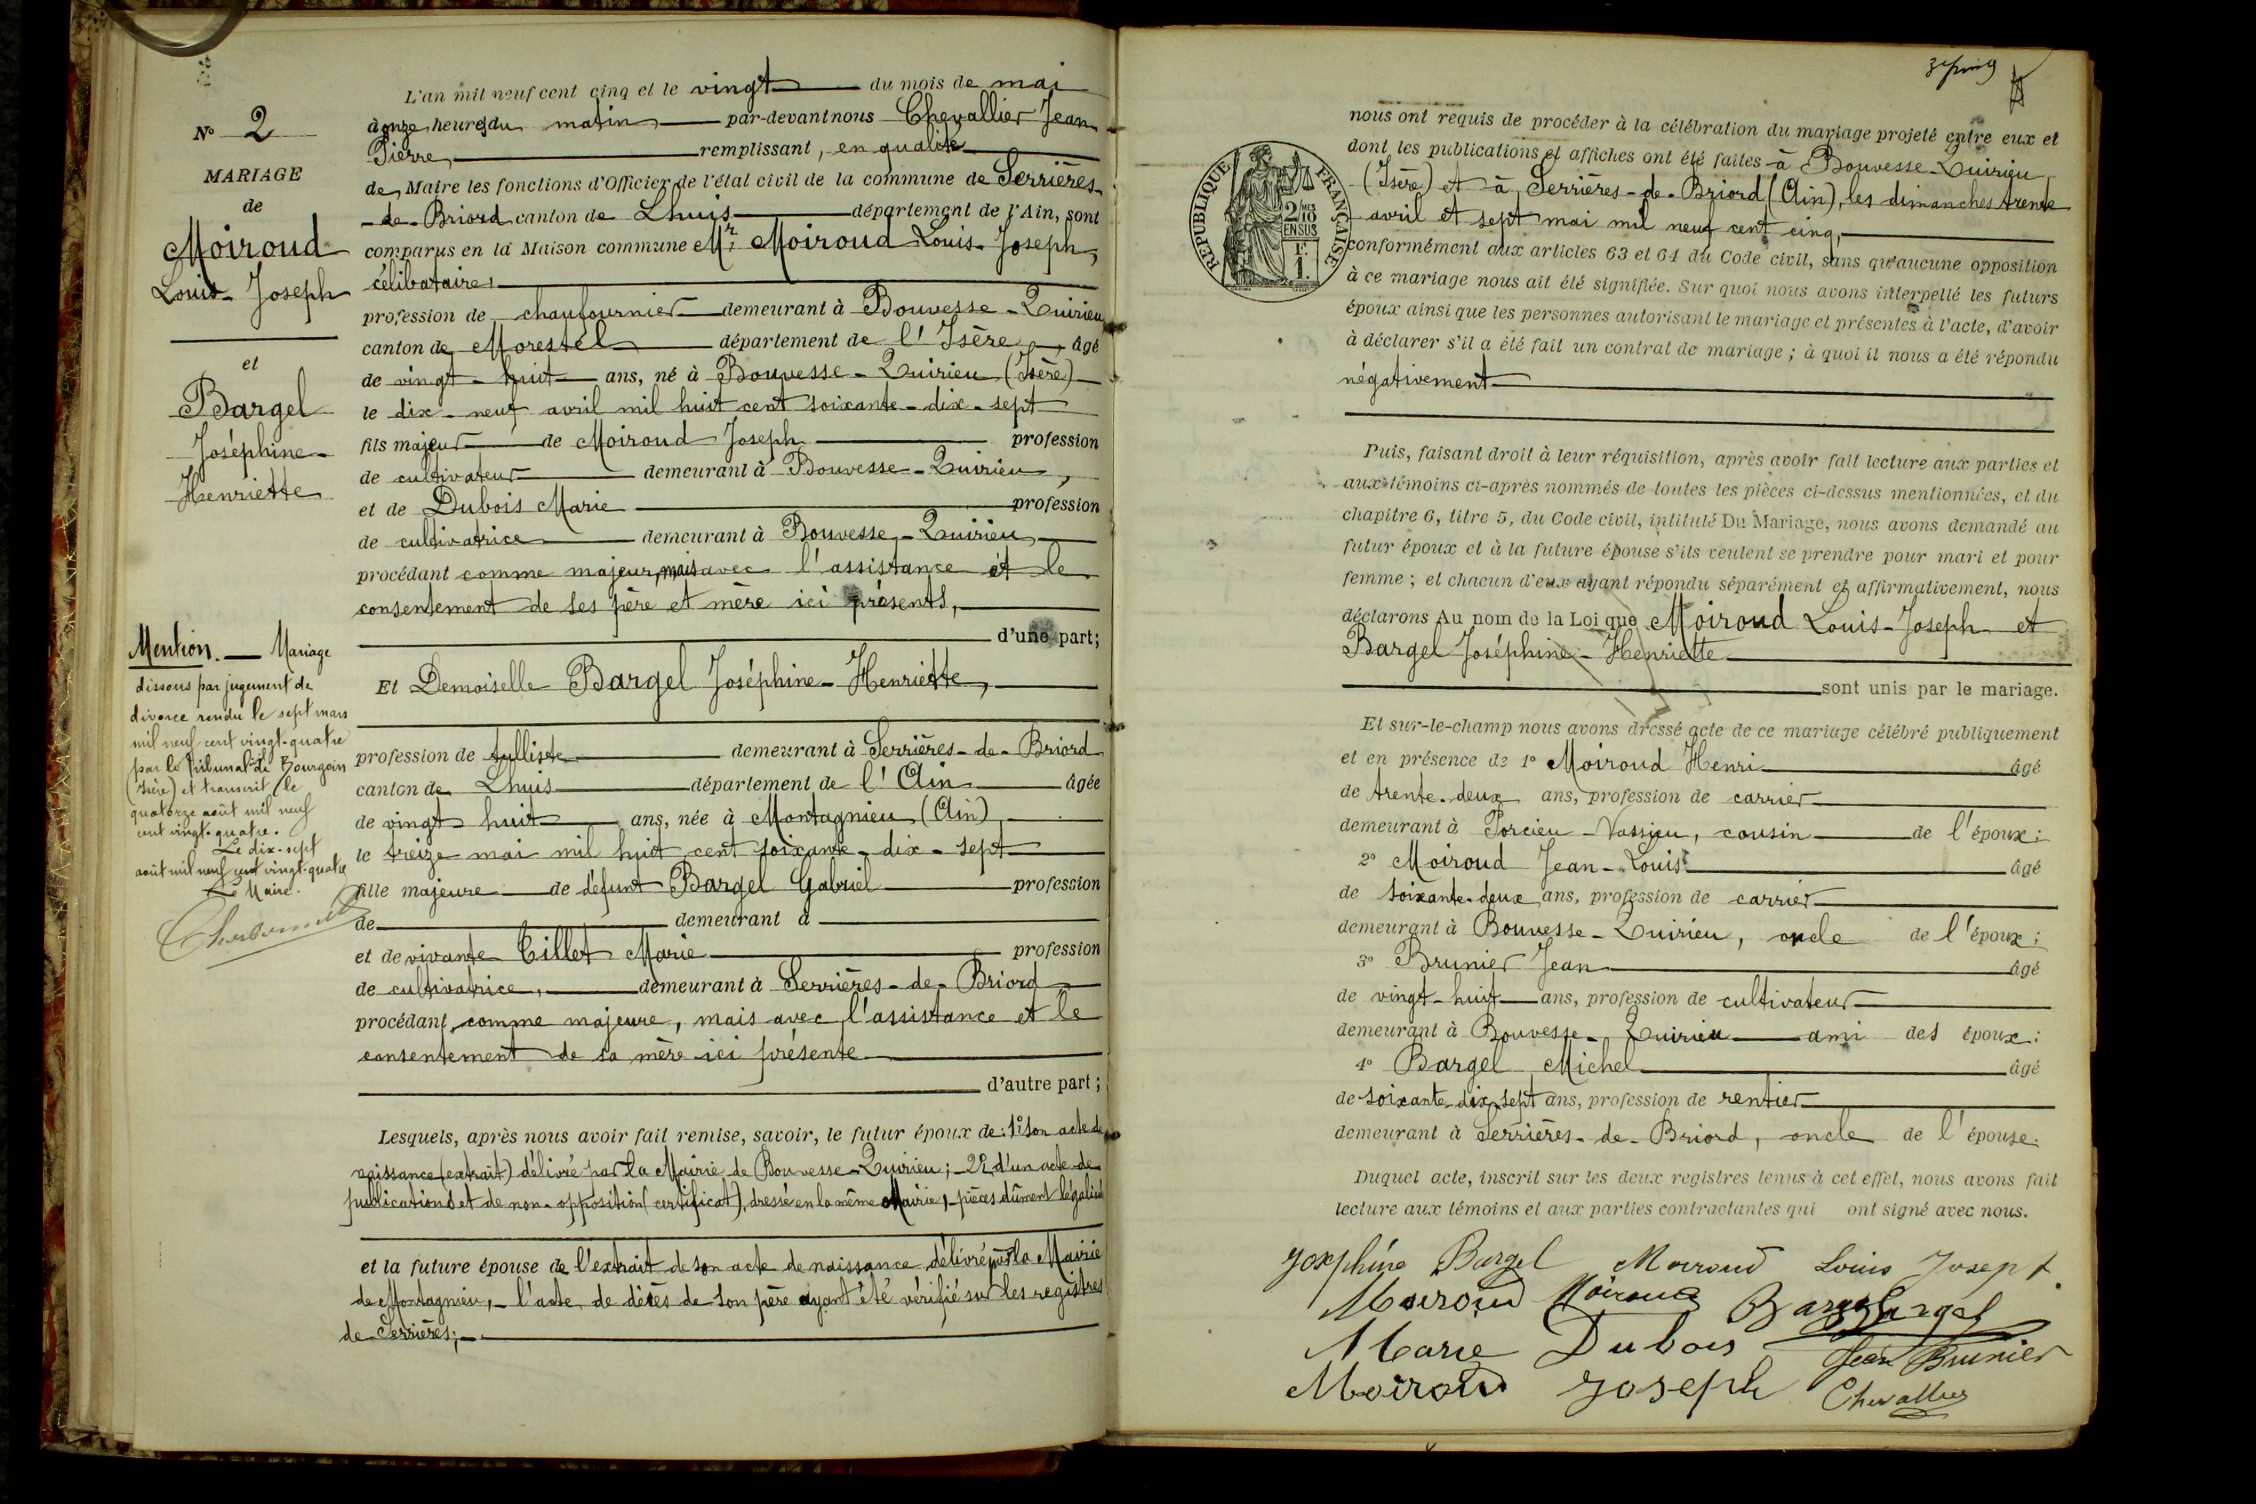 N° 2
MARIAGE
de
Moiroud
Louis-Joseph
et
Bargel
Joséphine-
Henriette
Mention. — Mariage
dissous par jugement de
divorce rendu le sept mars
mil neuf cent vingt-quatre
par le tribunal de Bourgoin
(Isère) et transcrit le
quatorze août mil neuf
cent vingt-quatre.
Le dix-sept
août mil neuf cent vingt-quatre
Le Maire.
L'an mil neuf cent cinq et le vingt du mois de mai
à onze heures du matin par-devant nous Chevallier Jean
Pierre, remplissant, en qualité
de Maire les fonctions d'Officier de l'état civil de la commune de Serrières-
-de-Briord canton de Lhuis département de l'Ain, sont
comparus en la Maison commune Mr. Moiroud Louis-Joseph,
célibataire,
profession de chaufournier demeurant à Bouvesse-Quirieu
canton de Morestel département de l'Isère, âgé
de vingt-huit ans, né à Bouvesse-Quirieu (Isère)
le dix-neuf avril mil huit cent soixante-dix-sept
fils majeur de Moiroud Joseph profession
de cultivateur demeurant à Bouvesse-Quirieu,
et de Dubois Marie profession
de cultivatrice demeurant à Bouvesse-Quirieu
procédant comme majeur, mais avec l'assistance et le
consentement de ses père et mère ici présents,
d'une part;
Et Demoiselle Bargel Joséphine-Henriette,
profession de tulliste demeurant à Serrières-de-Briord
canton de Lhuis département de l'Ain âgée
de vingt huit ans, née à Montagnieu (Ain)
le treize mai mil huit cent soixante-dix-sept
fille majeure de défunt Bargel Gabriel profession
de demeurant à
et de vivante Tillet Marie profession
de cultivatrice, demeurant à Serrières-de-Briord
procédant comme majeure, mais avec l'assistance et le
consentement de sa mère ici présente
d'autre part;
Lesquels, après nous avoir fait remise, savoir, le futur époux de: 1° son acte de
naissance (extrait) délivré par la Mairie de Bouvesse-Quirieu; - 2° d'un acte de
publications et de non-opposition (certificat), dressé en la même Mairie, - pièces dûment légalisées
et la future épouse de l'extrait de son acte de naissance délivré par la Mairie
de Montagnieu, - l'acte de décès de son père ayant été vérifié sur les registres
de Serrières;
RÉPUBLIQUE FRANÇAISE
2/10
EN SUS
1 F.
nous ont requis de procéder à la célébration du mariage projeté entre eux et
dont les publications et affiches ont été faites à Bouvesse-Quirieu
(Isère) et à Serrières-de-Briord (Ain), les dimanches trente
avril et sept mai mil neuf cent cinq,
conformément aux articles 63 et 64 du Code civil, sans qu'aucune opposition
à ce mariage nous ait été signifiée. Sur quoi nous avons interpellé les futurs
époux ainsi que les personnes autorisant le mariage et présentes à l'acte, d'avoir
à déclarer s'il a été fait un contrat de mariage; à quoi il nous a été répondu
négativement
Puis, faisant droit à leur réquisition, après avoir fait lecture aux parties et
aux témoins ci-après nommés de toutes les pièces ci-dessus mentionnées, et du
chapitre 6, titre 5, du Code civil, intitulé Du Mariage, nous avons demandé au
futur époux et à la future épouse s'ils veulent se prendre pour mari et pour
femme; et chacun d'eux ayant répondu séparément et affirmativement, nous
déclarons Au nom de la Loi que Moiroud Louis-Joseph et
Bargel Joséphine-Henriette
sont unis par le mariage.
Et sur-le-champ nous avons dressé acte de ce mariage célébré publiquement
et en présence de 1° Moiroud Henri âgé
de trente-deux ans, profession de carrier
demeurant à Porcieu-Vassieu, cousin de l'époux:
2° Moiroud Jean-Louis âgé
de soixante-deux ans, profession de carrier
demeurant à Bouvesse-Quirieu, oncle de l'époux:
3° Brunier Jean âgé
de vingt-huit ans, profession de cultivateur
demeurant à Bouvesse-Quirieu ami des époux:
4° Bargel Michel âgé
de soixante-dix-sept ans, profession de rentier
demeurant à Serrières-de-Briord, oncle de l'épouse.
Duquel acte, inscrit sur les deux registres tenus à cet effet, nous avons fait
lecture aux témoins et aux parties contractantes qui ont signé avec nous.
Joséphine Bargel Moiroud Louis Joseph
Moiroud Moiroud Bargel Bargel
Marie Dubois Jean Brunier
Moiroud Joseph Chevallier